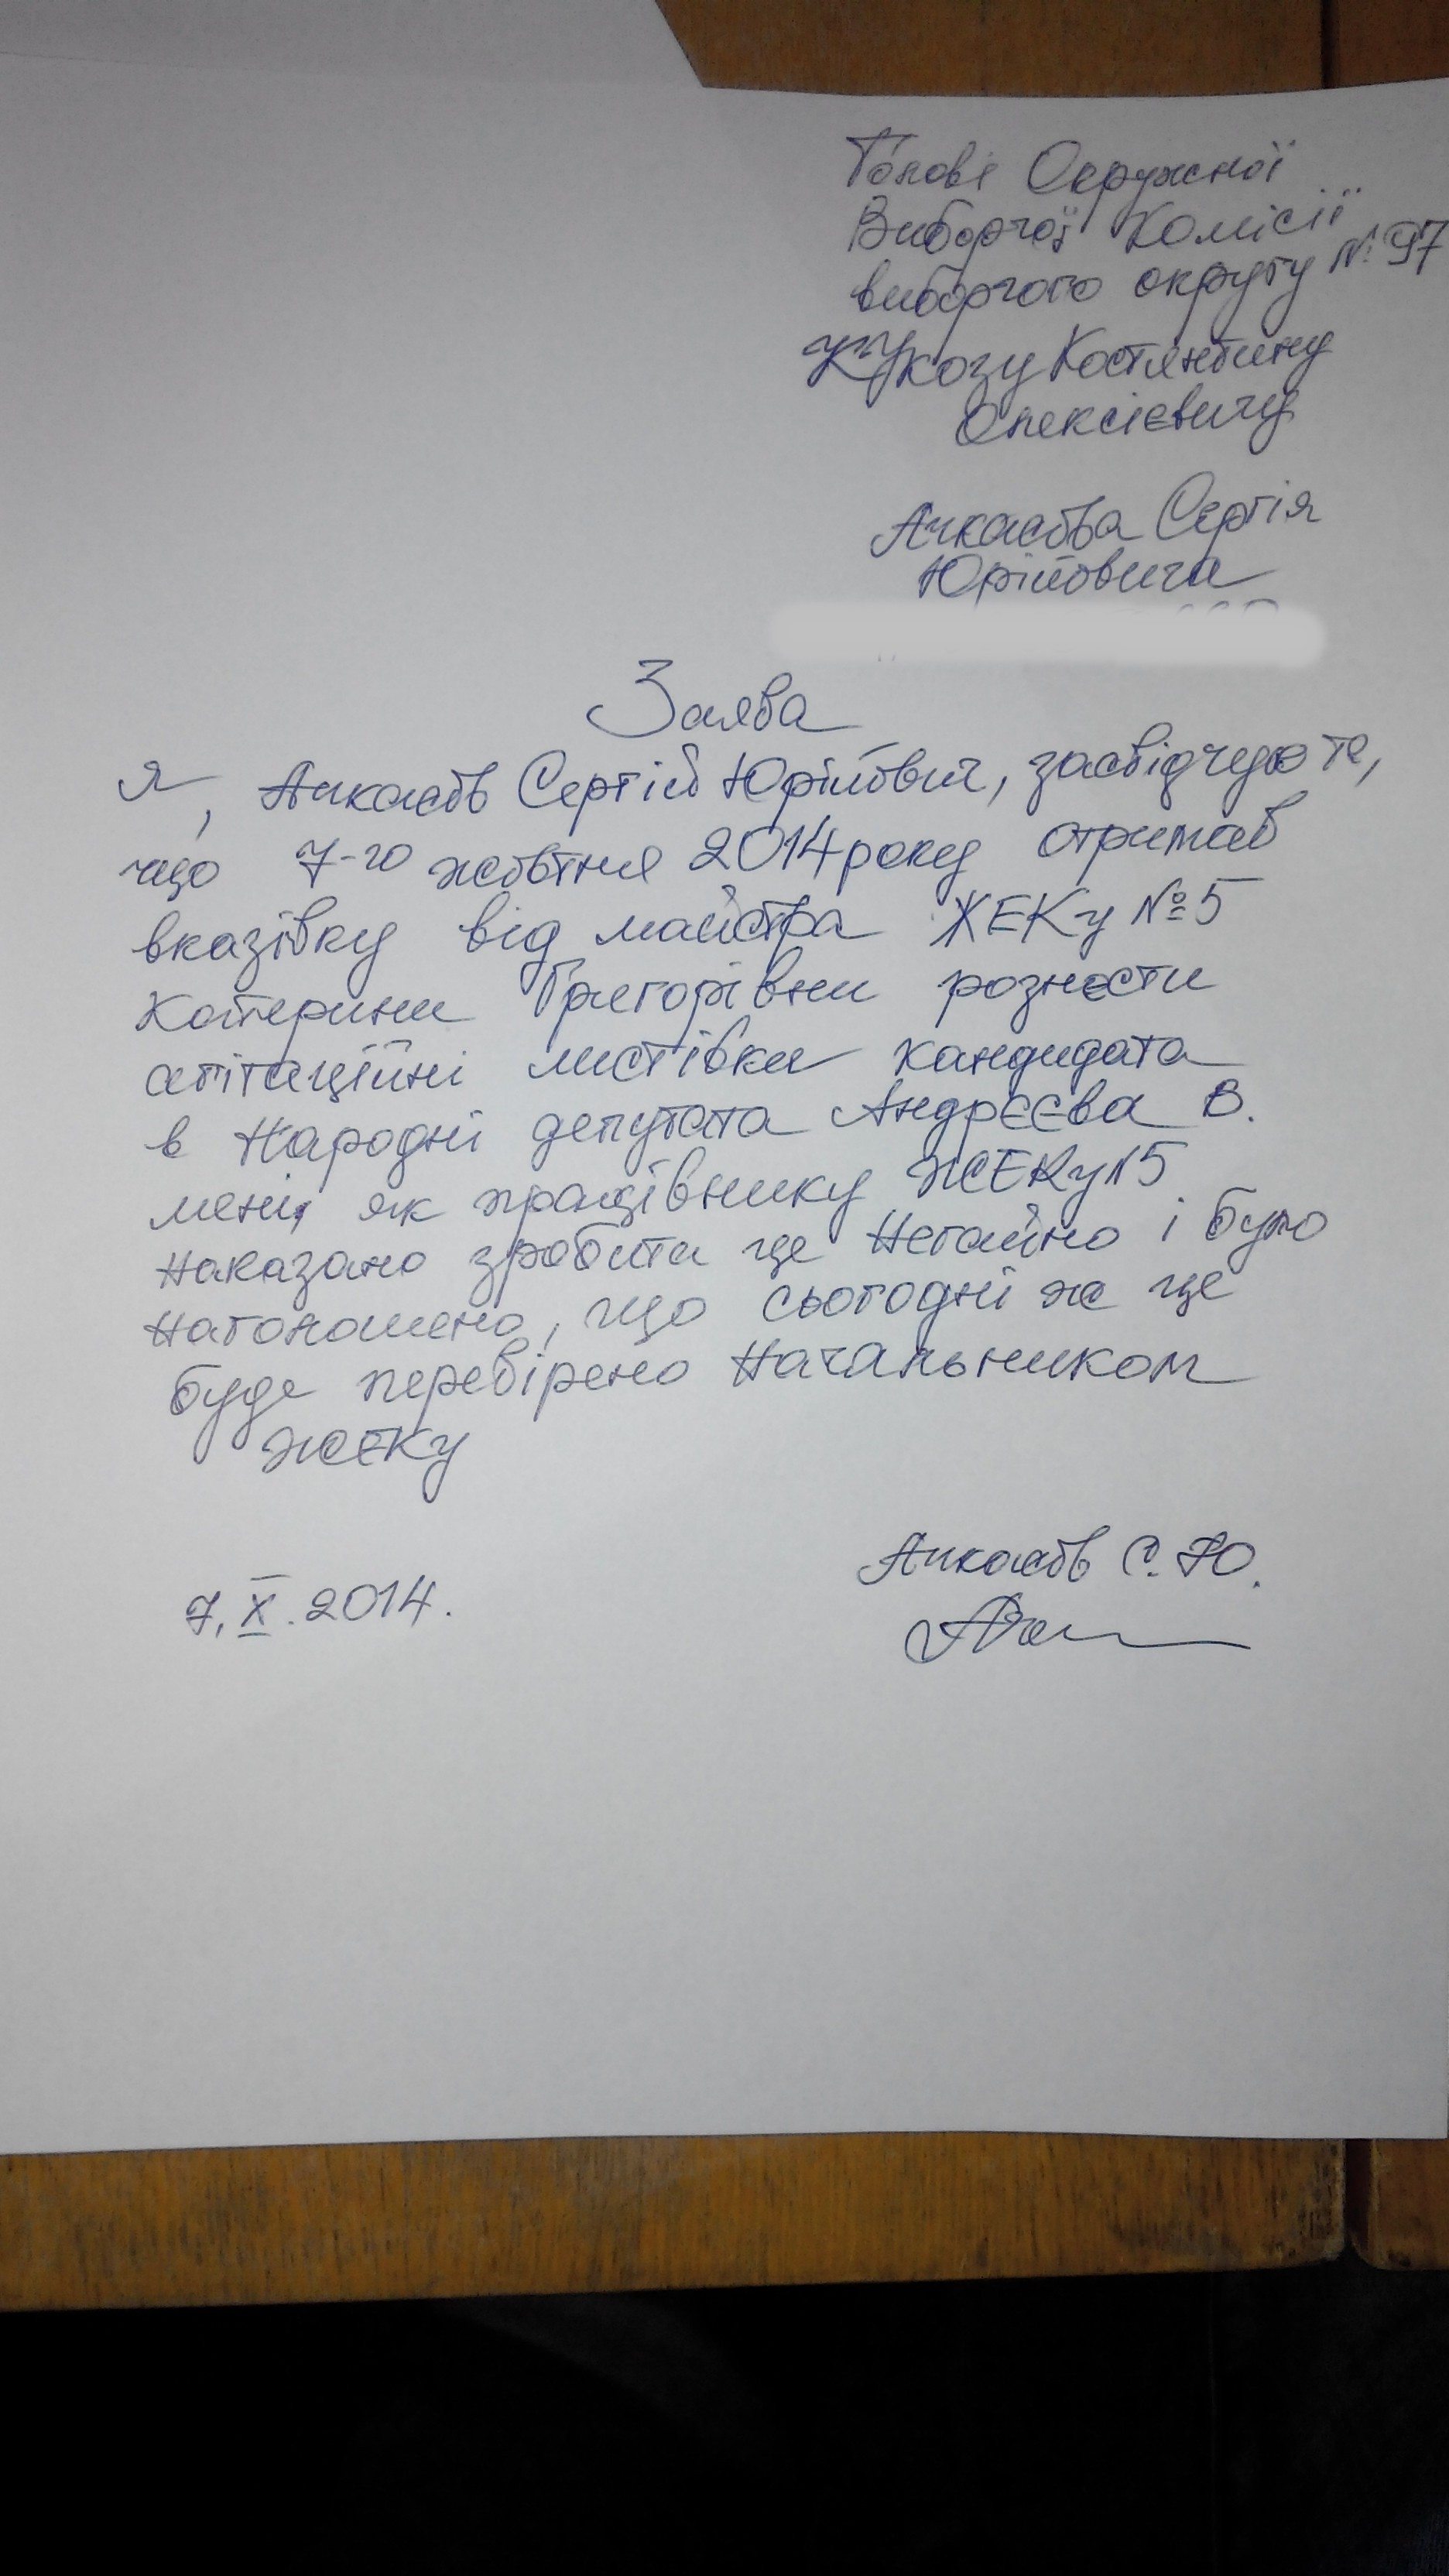 Голові Окружної
Виборчої Комісії
виборчого округу № 97
Костянтину
Олексієвичу
Сергія
Юрійовича
Заява
Я, Сергій Юрійович, засвідчую те,
що 7-го жовтня 2014 року отримав
вказівку від майстра ЖЕКу №5
Катерини Григорівни рознести
агітаційні листівки кандидата
в Народні депутата Андрєєва В.
мені, як працівнику ЖЕКу №5
наказано зробити це негайно і було
наголошено, що сьогодні же це
буде перевірено начальником
жеку
С. Ю.
7. X. 2014.